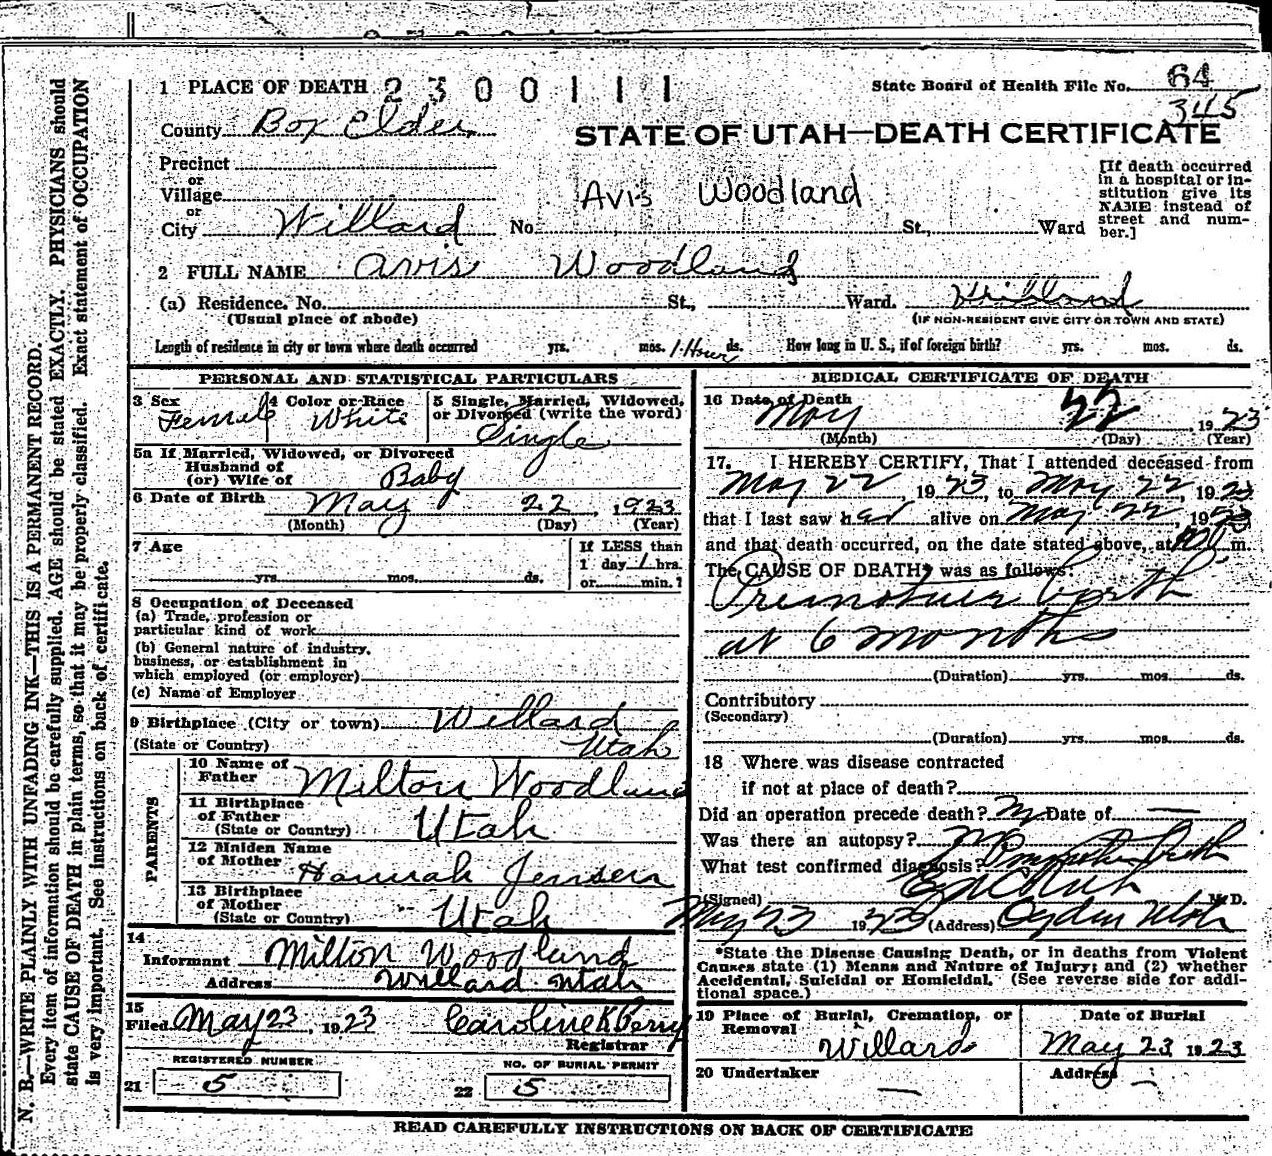 1 PLACE OF DEATH 2300111
State Board of Health File No. 64
345
County Box Elder
STATE OF UTAH—DEATH CERTIFICATE
Precinct
or
Village
or
City Willard No. St., Ward
Avis Woodland
[If death occurred
in a hospital or in-
stitution give its
NAME instead of
street and num-
ber.]
2 FULL NAME Avis Woodland
(a) Residence. No. St., Ward. Willard
(Usual place of abode) (IF NON-RESIDENT GIVE CITY OR TOWN AND STATE)
Length of residence in city or town where death occurred yrs. mos. 1 Hour ds. How long in U. S., if of foreign birth? yrs. mos. ds.
PERSONAL AND STATISTICAL PARTICULARS
3 Sex Female
4 Color or Race White
5 Single, Married, Widowed,
or Divorced (write the word)
Single
5a If Married, Widowed, or Divorced
Husband of
(or) Wife of Baby
6 Date of Birth May 22, 1923
(Month) (Day) (Year)
7 Age If LESS than
1 day 1 hrs.
yrs. mos. ds. or min.?
8 Occupation of Deceased
(a) Trade, profession or
particular kind of work
(b) General nature of industry,
business, or establishment in
which employed (or employer)
(c) Name of Employer
9 Birthplace (City or town) Willard
(State or Country) Utah
PARENTS
10 Name of
Father Milton Woodland
11 Birthplace
of Father
(State or Country) Utah
12 Maiden Name
of Mother Hannah Jensen
13 Birthplace
of Mother
(State or Country) Utah
14
Informant Milton Woodland
Address Willard Utah
15
Filed May 23, 1923 Caroline K Perry
Registrar
REGISTERED NUMBER
21 5
NO. OF BURIAL PERMIT
22 5
MEDICAL CERTIFICATE OF DEATH
16 Date of Death
May 22 1923
(Month) (Day) (Year)
17. I HEREBY CERTIFY, That I attended deceased from
May 22, 1923, to May 22, 1923
that I last saw her alive on May 22, 1923
and that death occurred, on the date stated above, at m.
The CAUSE OF DEATH* was as follows:
Prematuer birth
at 6 months
(Duration) yrs. mos. ds.
Contributory
(Secondary)
(Duration) yrs. mos. ds.
18 Where was disease contracted
if not at place of death?
Did an operation precede death? No Date of —
Was there an autopsy? No
What test confirmed diagnosis?
(Signed) M. D.
May 23 1923 (Address) Ogden Utah
*State the Disease Causing Death, or in deaths from Violent
Causes state (1) Means and Nature of Injury; and (2) whether
Accidental, Suicidal or Homicidal. (See reverse side for addi-
tional space.)
19 Place of Burial, Cremation, or
Removal
Willard
Date of Burial
May 23 1923
20 Undertaker —
Address —
READ CAREFULLY INSTRUCTIONS ON BACK OF CERTIFICATE
N. B.—WRITE PLAINLY WITH UNFADING INK—THIS IS A PERMANENT RECORD.
Every item of information should be carefully supplied. AGE should be stated EXACTLY. PHYSICIANS should
state CAUSE OF DEATH in plain terms, so that it may be properly classified. Exact statement of OCCUPATION
is very important. See instructions on back of certificate.